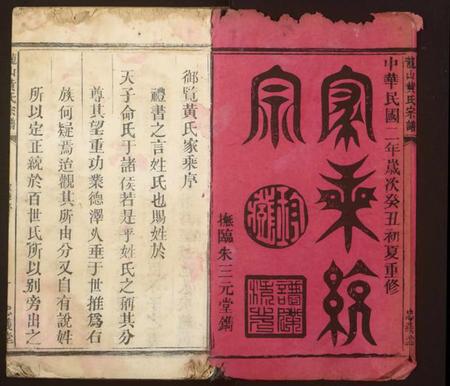 龍山黃氏宗譜
中華民國二年歲次癸丑初夏重修
家乘統
宗
撫臨朱三元堂鐫
忠義堂
御覽黃氏家乘序
禮書之言姓氏也賜姓於
天子命氏于諸侯若是乎姓氏之稱其分
尊其望重功業德澤必垂于世推為右
族何疑焉迨觀其所由分又自有說姓
所以定正統於百世氏所以別旁出之